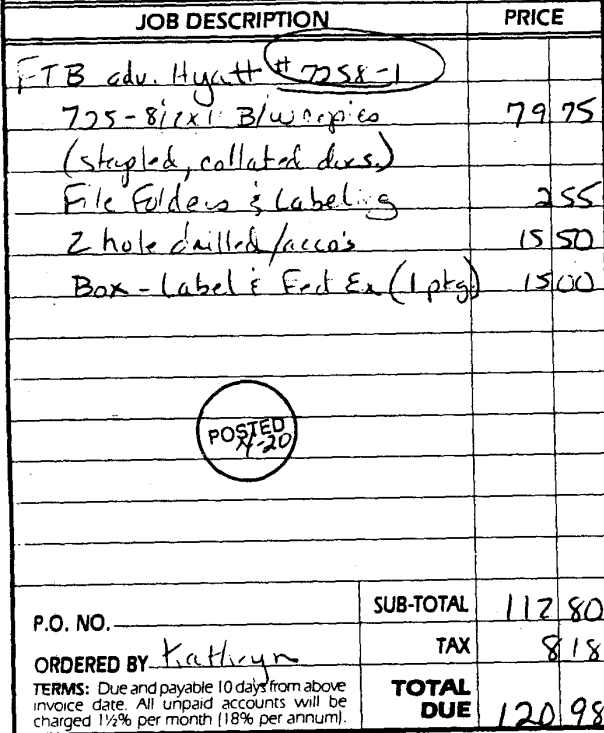 JOB DESCRIPTION PRICE
FTB adv. Hyatt # 7258-1
725-8½x11 B/W copies 79 75
(stapled, collated docs.)
File Folders & Labeling 2 55
2 hole drilled/acco's 15 50
Box - Label & Fed Ex (1 pkg) 15 00
POSTED
4-20
P.O. NO. SUB-TOTAL 112 80
ORDERED BY Kathryn TAX 8 18
TERMS: Due and payable 10 days from above
invoice date. All unpaid accounts will be
charged 1½% per month (18% per annum).
TOTAL
DUE 120 98